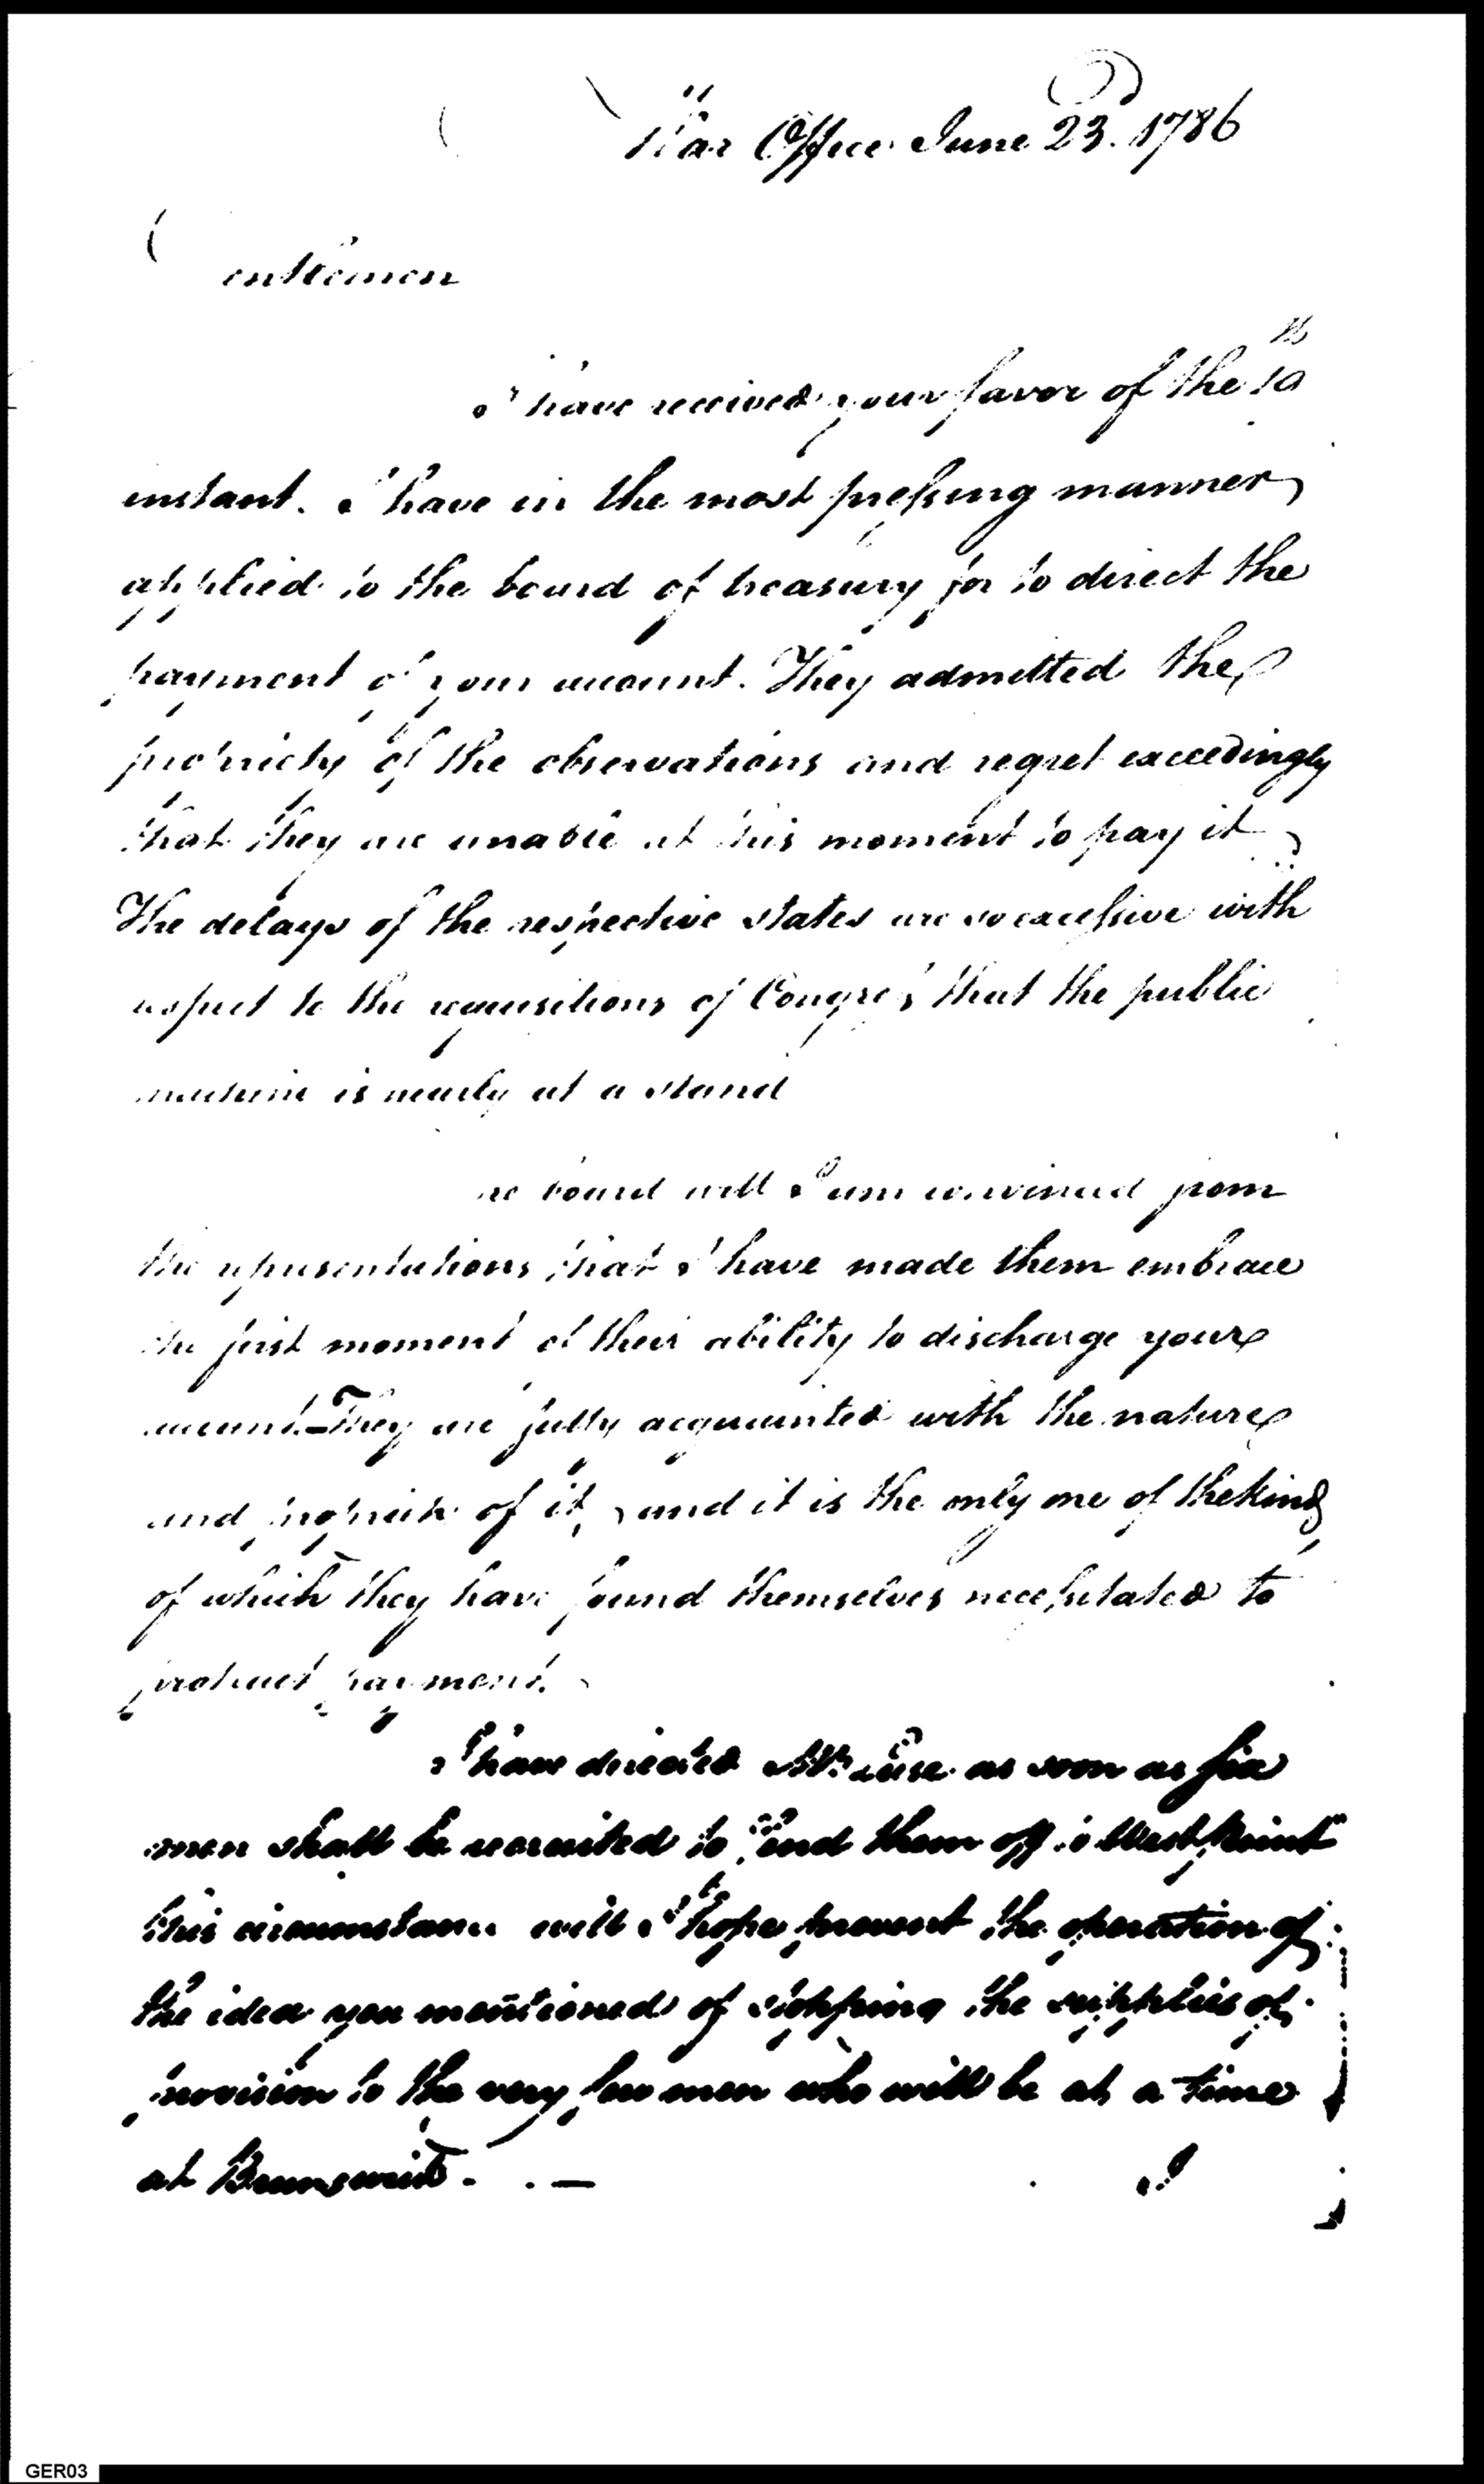 War Office June 23. 1786
Gentlemen
I have received your favor of the
instant. I have in the most pressing manner
applied to the board of treasury for to direct the
payment of your account. They admitted the
propriety of the observations and regret exceedingly
that they are unable at this moment to pay it
The delays of the respective states are so excessive with
respect to the requisitions of Congress that the public
machine is nearly at a stand
The board will I am convinced from
the representations that I have made them embrace
the first moment of their ability to discharge your
account. They are fully acquainted with the nature
and propriety of it, and it is the only one of the kind
of which they have found themselves necessitated to
protract payment.
I have directed Mr. as soon as six
men shall be recruited to send them off to West point
this circumstance will I hope prevent the operation of
the idea you mentioned of stopping the supplies of
provision to the very few men who will be at a time
at Brunswick. —
GER03